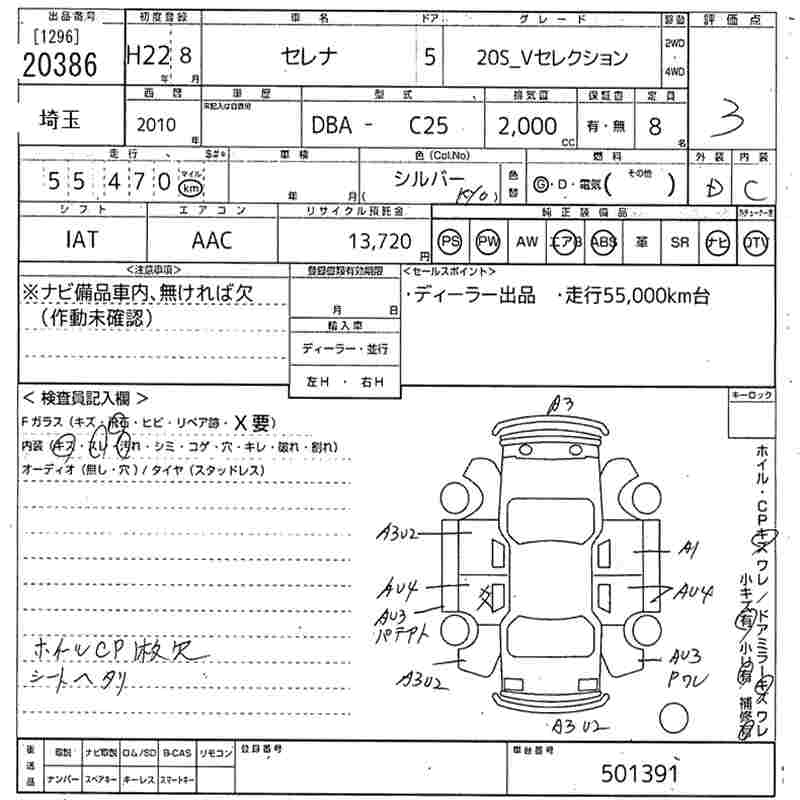 出品番号 初度登録 車名 ドア グレード 駆動 評価点
[1296]
20386 H22 8 セレナ 5 20S_Vセレクション 2WD・4WD 3
年 月
埼玉 西暦 車歴 型式 排気量 保証書 定員
※記入は自家用外
2010 年 DBA - C25 2,000 CC 有・無 8 名
走行 車検 色 (Col.No) 燃料 外装 内装
55470 マイル km 年 月 シルバー ( KY0 ) 色替 G・D・電気( その他 ) D C
シフト エアコン リサイクル預託金 純正装備品
IAT AAC 13,720 円 PS PW AW エアB ABS 革 SR ナビ DTV
<注意事項> 登録書類有効期限 <セールスポイント>
※ナビ備品車内、無ければ欠
(作動未確認)
月 日
輸入車
ディーラー・並行
左H ・ 右H
・ディーラー出品 ・走行55,000km台
< 検査員記入欄 >
キーロック
Fガラス (キズ・飛石・ヒビ・リペア跡・X要)
内装 (キズ・スレ・汚れ・シミ・コゲ・穴・キレ・破れ・割れ)
オーディオ (無し・穴) / タイヤ (スタッドレス)
ホイールCP1枚欠
シートヘタリ
A3
A3U2
A1
AU4
AU4
AU3
パテアト
A3U2
AU3
Pワレ
A3U2
ホイル・CPキズワレ/ドアミラーキズワレ
小キズ有/小U有/補修有
後送品 取説 ナビ取説 CD&/SD B-CAS リモコン 登録番号 車台番号
ナンバー スペアキー キーレス スマートキー 501391